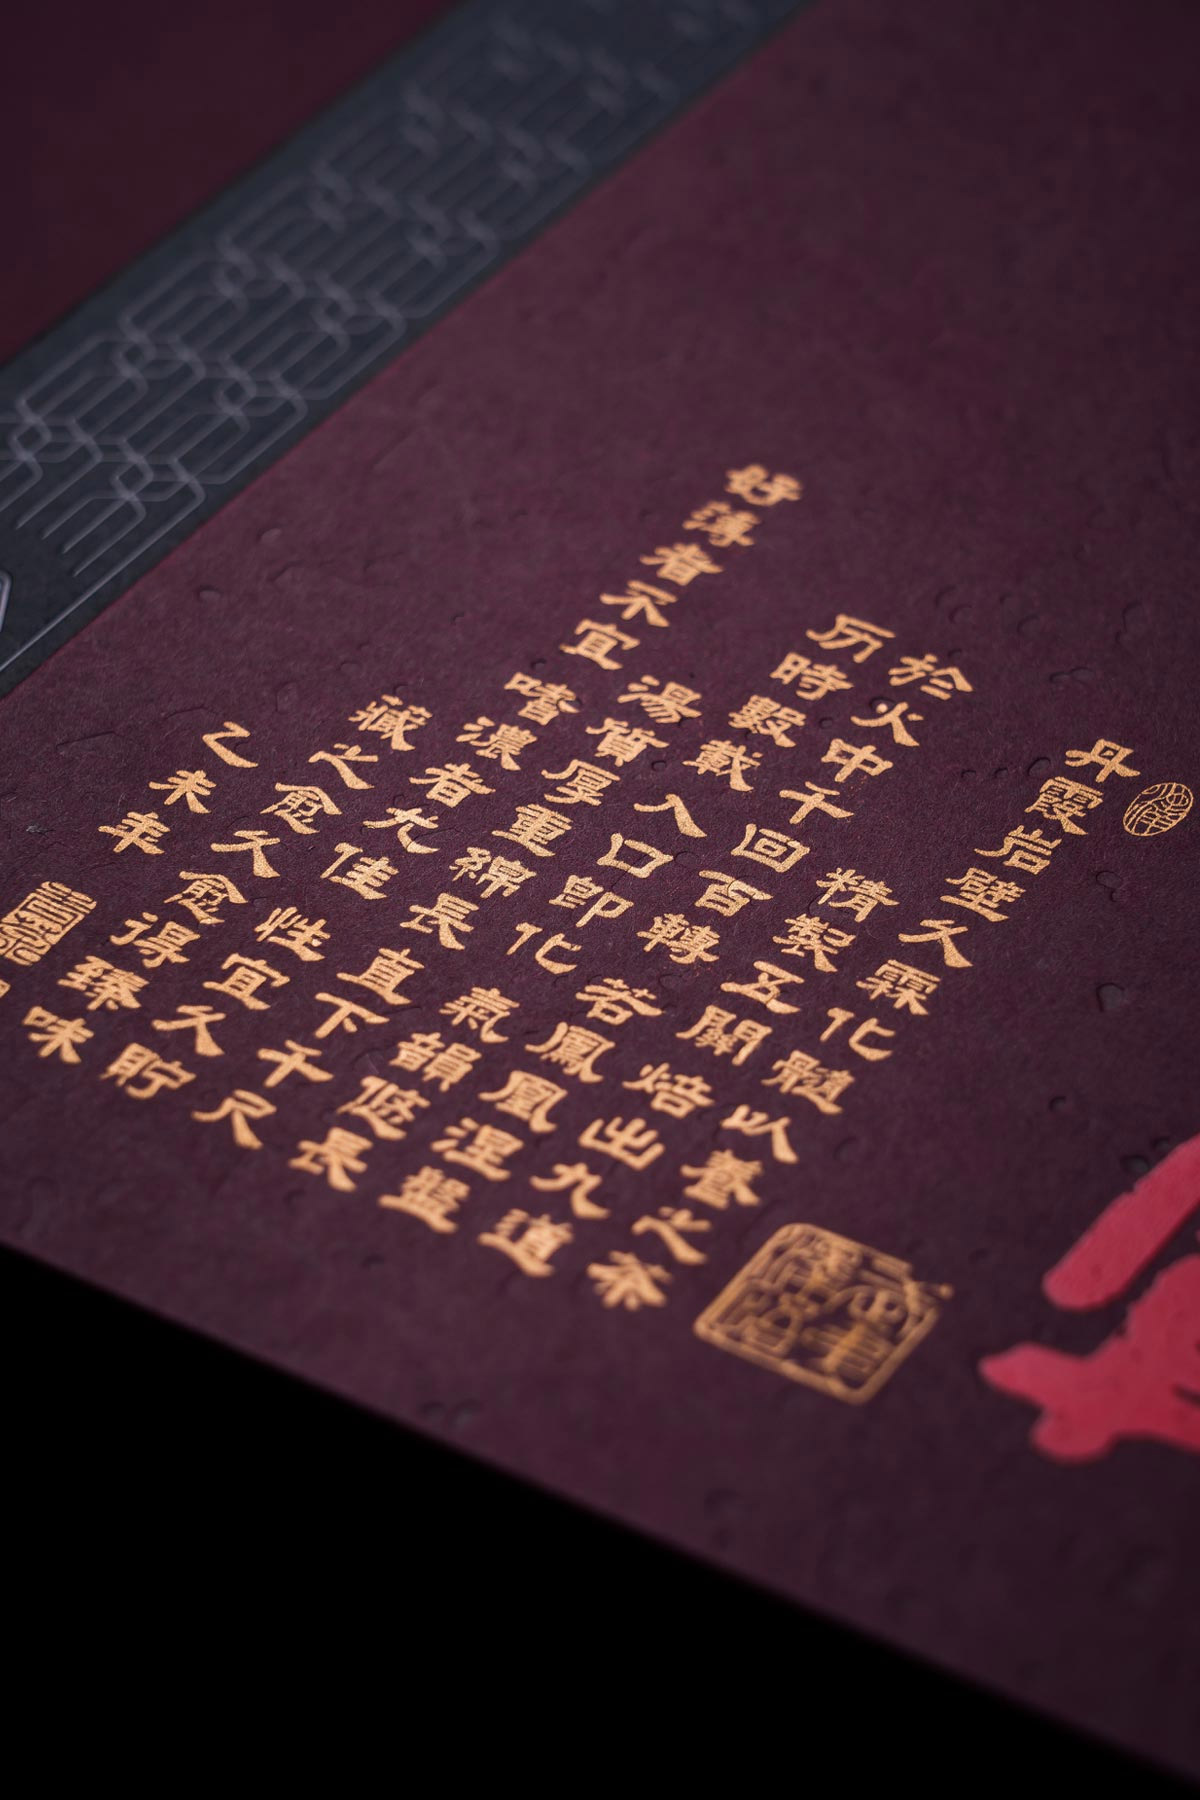 丹霞岩壁久霖化髓以養之茶
精製五關焙出九道
於火中千回百轉若鳳凰涅盤
历時數載入口即化氣韻悠長
湯質厚重綿長直下千尺
好薄者不宜嗜濃者尤佳性宜久貯
藏之愈久愈得臻味
乙未年